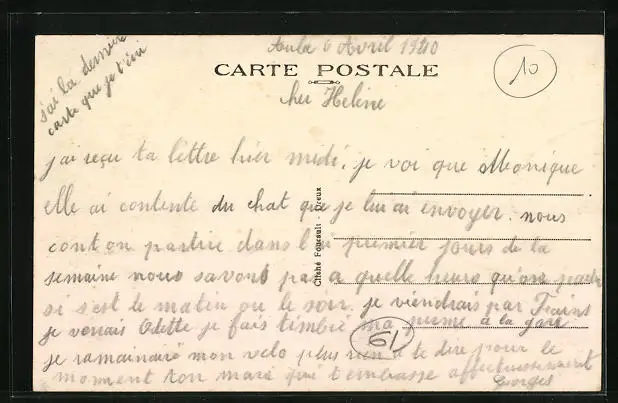 Aula 6 Avril 1940
CARTE POSTALE
10
j'ai la dernière
carte que je t'écri
cher Helène
j'ai reçu ta lettre hier midi. je voi que Monique
elle ai contente du chat que je lui ai envoyer. nous
cont on partire dans les premier jours de la
semaine nous savons pas a quelle heure qu'on parte
si s'est le matin ou le soir. je viendrais par Trains
je venais Odette je fais timbré ma meme à la gare
je ramainairé mon velo plus rien a te dire pour le
moment ton mari qui t'embrasse affectueusement
Georges
61
Cliché Foucault - Dreux